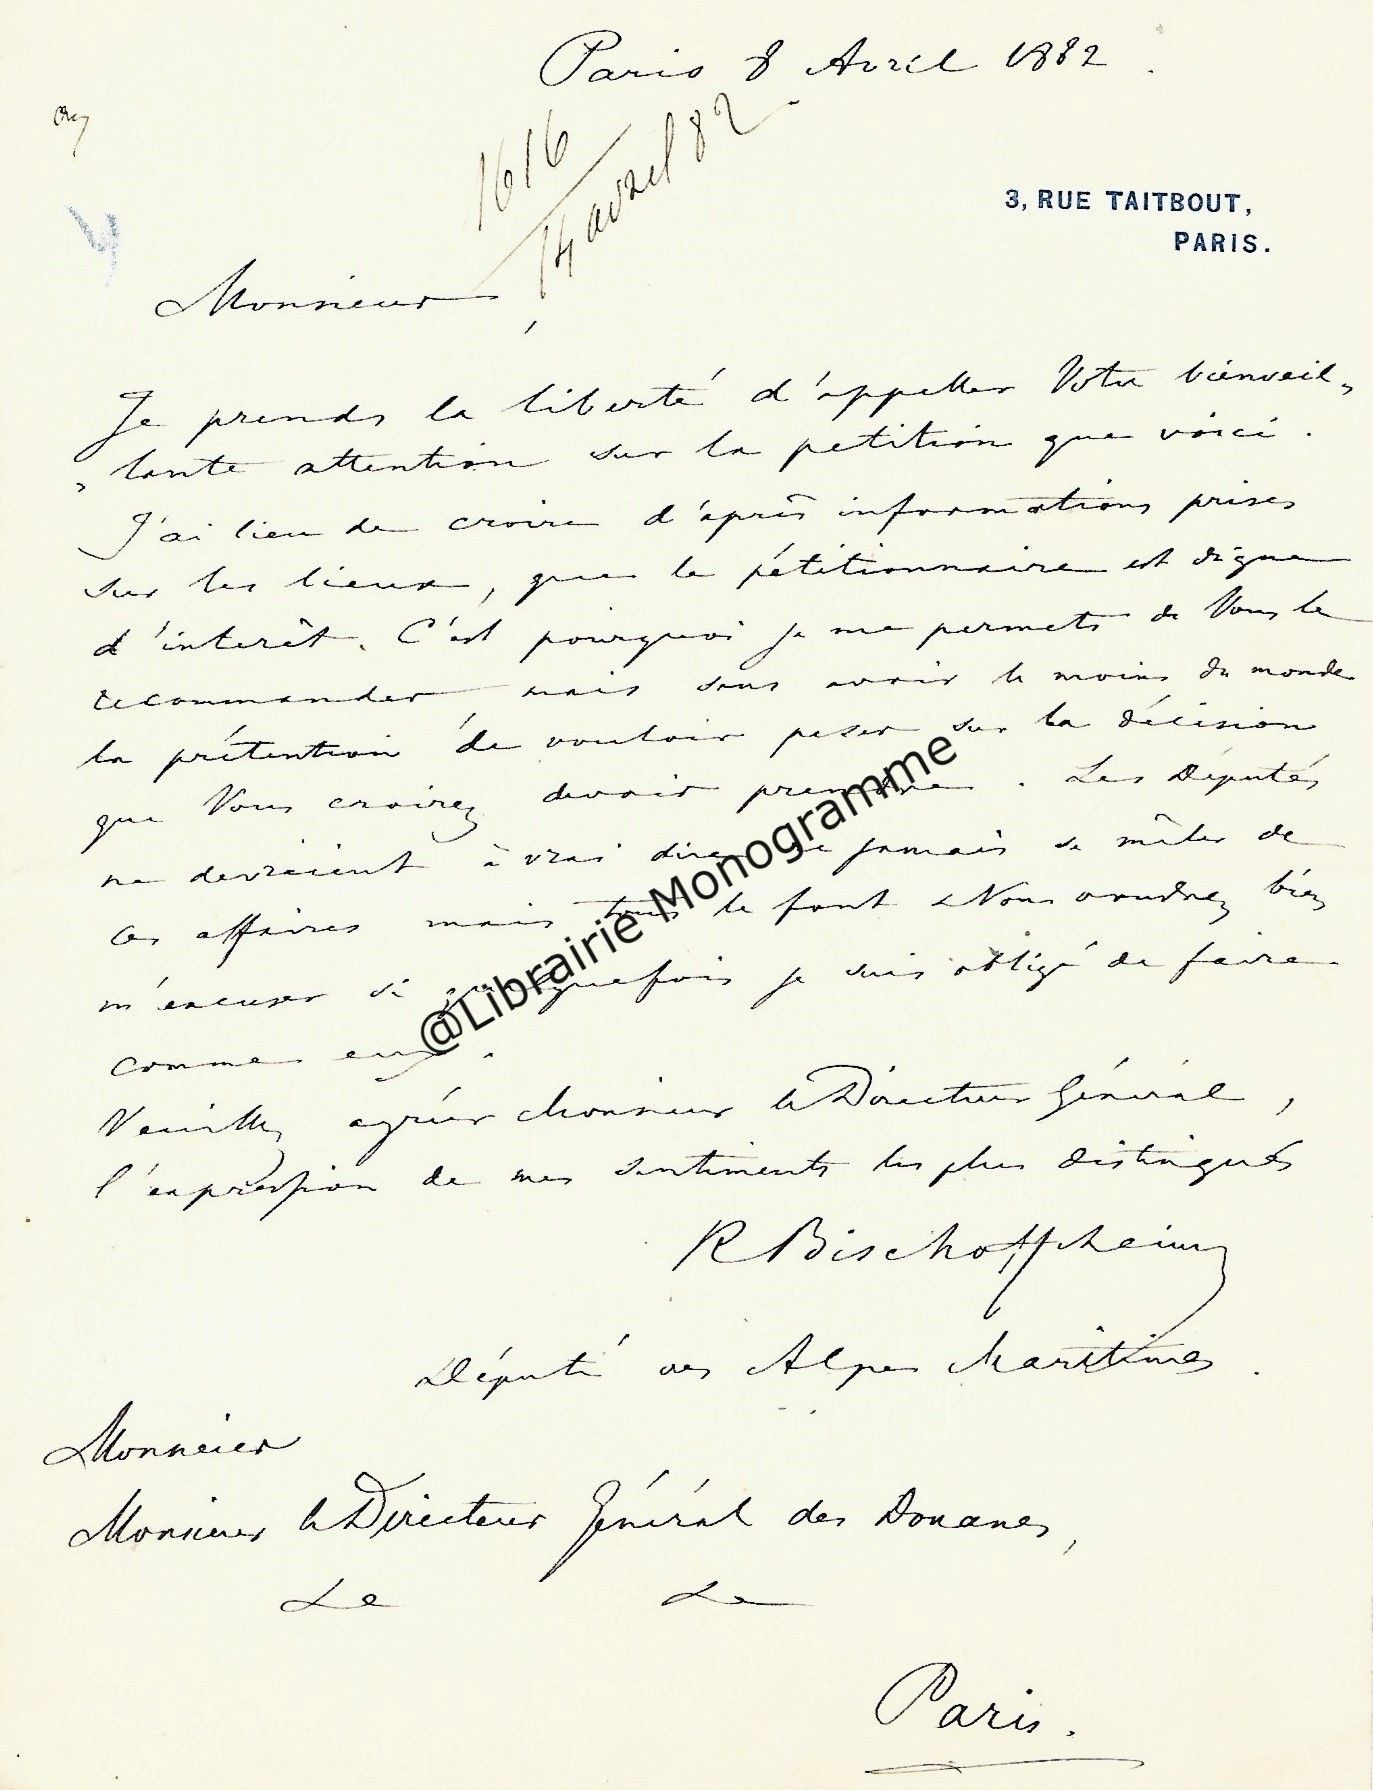 Paris 8 Avril 1882.
1616
14 avril 82
3, RUE TAITBOUT,
PARIS.
Monsieur,
Je prends la liberté d'appeller Votre bienveil-
-lante attention sur la petition que voici.
J'ai lieu de croire d'après informations prises
sur les lieux, que le pétitionnaire est digne
d'interêt. C'est pourquoi je me permets de Vous le
recommander mais sans avoir le moins du monde
la prétention de vouloir peser sur la décision
que Vous croirez devoir prendre. Les Députés
ne devraient à vrai dire jamais se mêler de
ces affaires mais tous le font & Vous voudrez bien
m'excuser si quelquefois je suis obligé de faire
comme eux.
Veuillez agréer Monsieur le Directeur Général,
l'expression de mes sentiments les plus distingués
R Bischoffsheim
Député des Alpes Maritimes.
Monsieur
Monsieur le Directeur Général des Douanes,
Paris.
@Librairie Monogramme